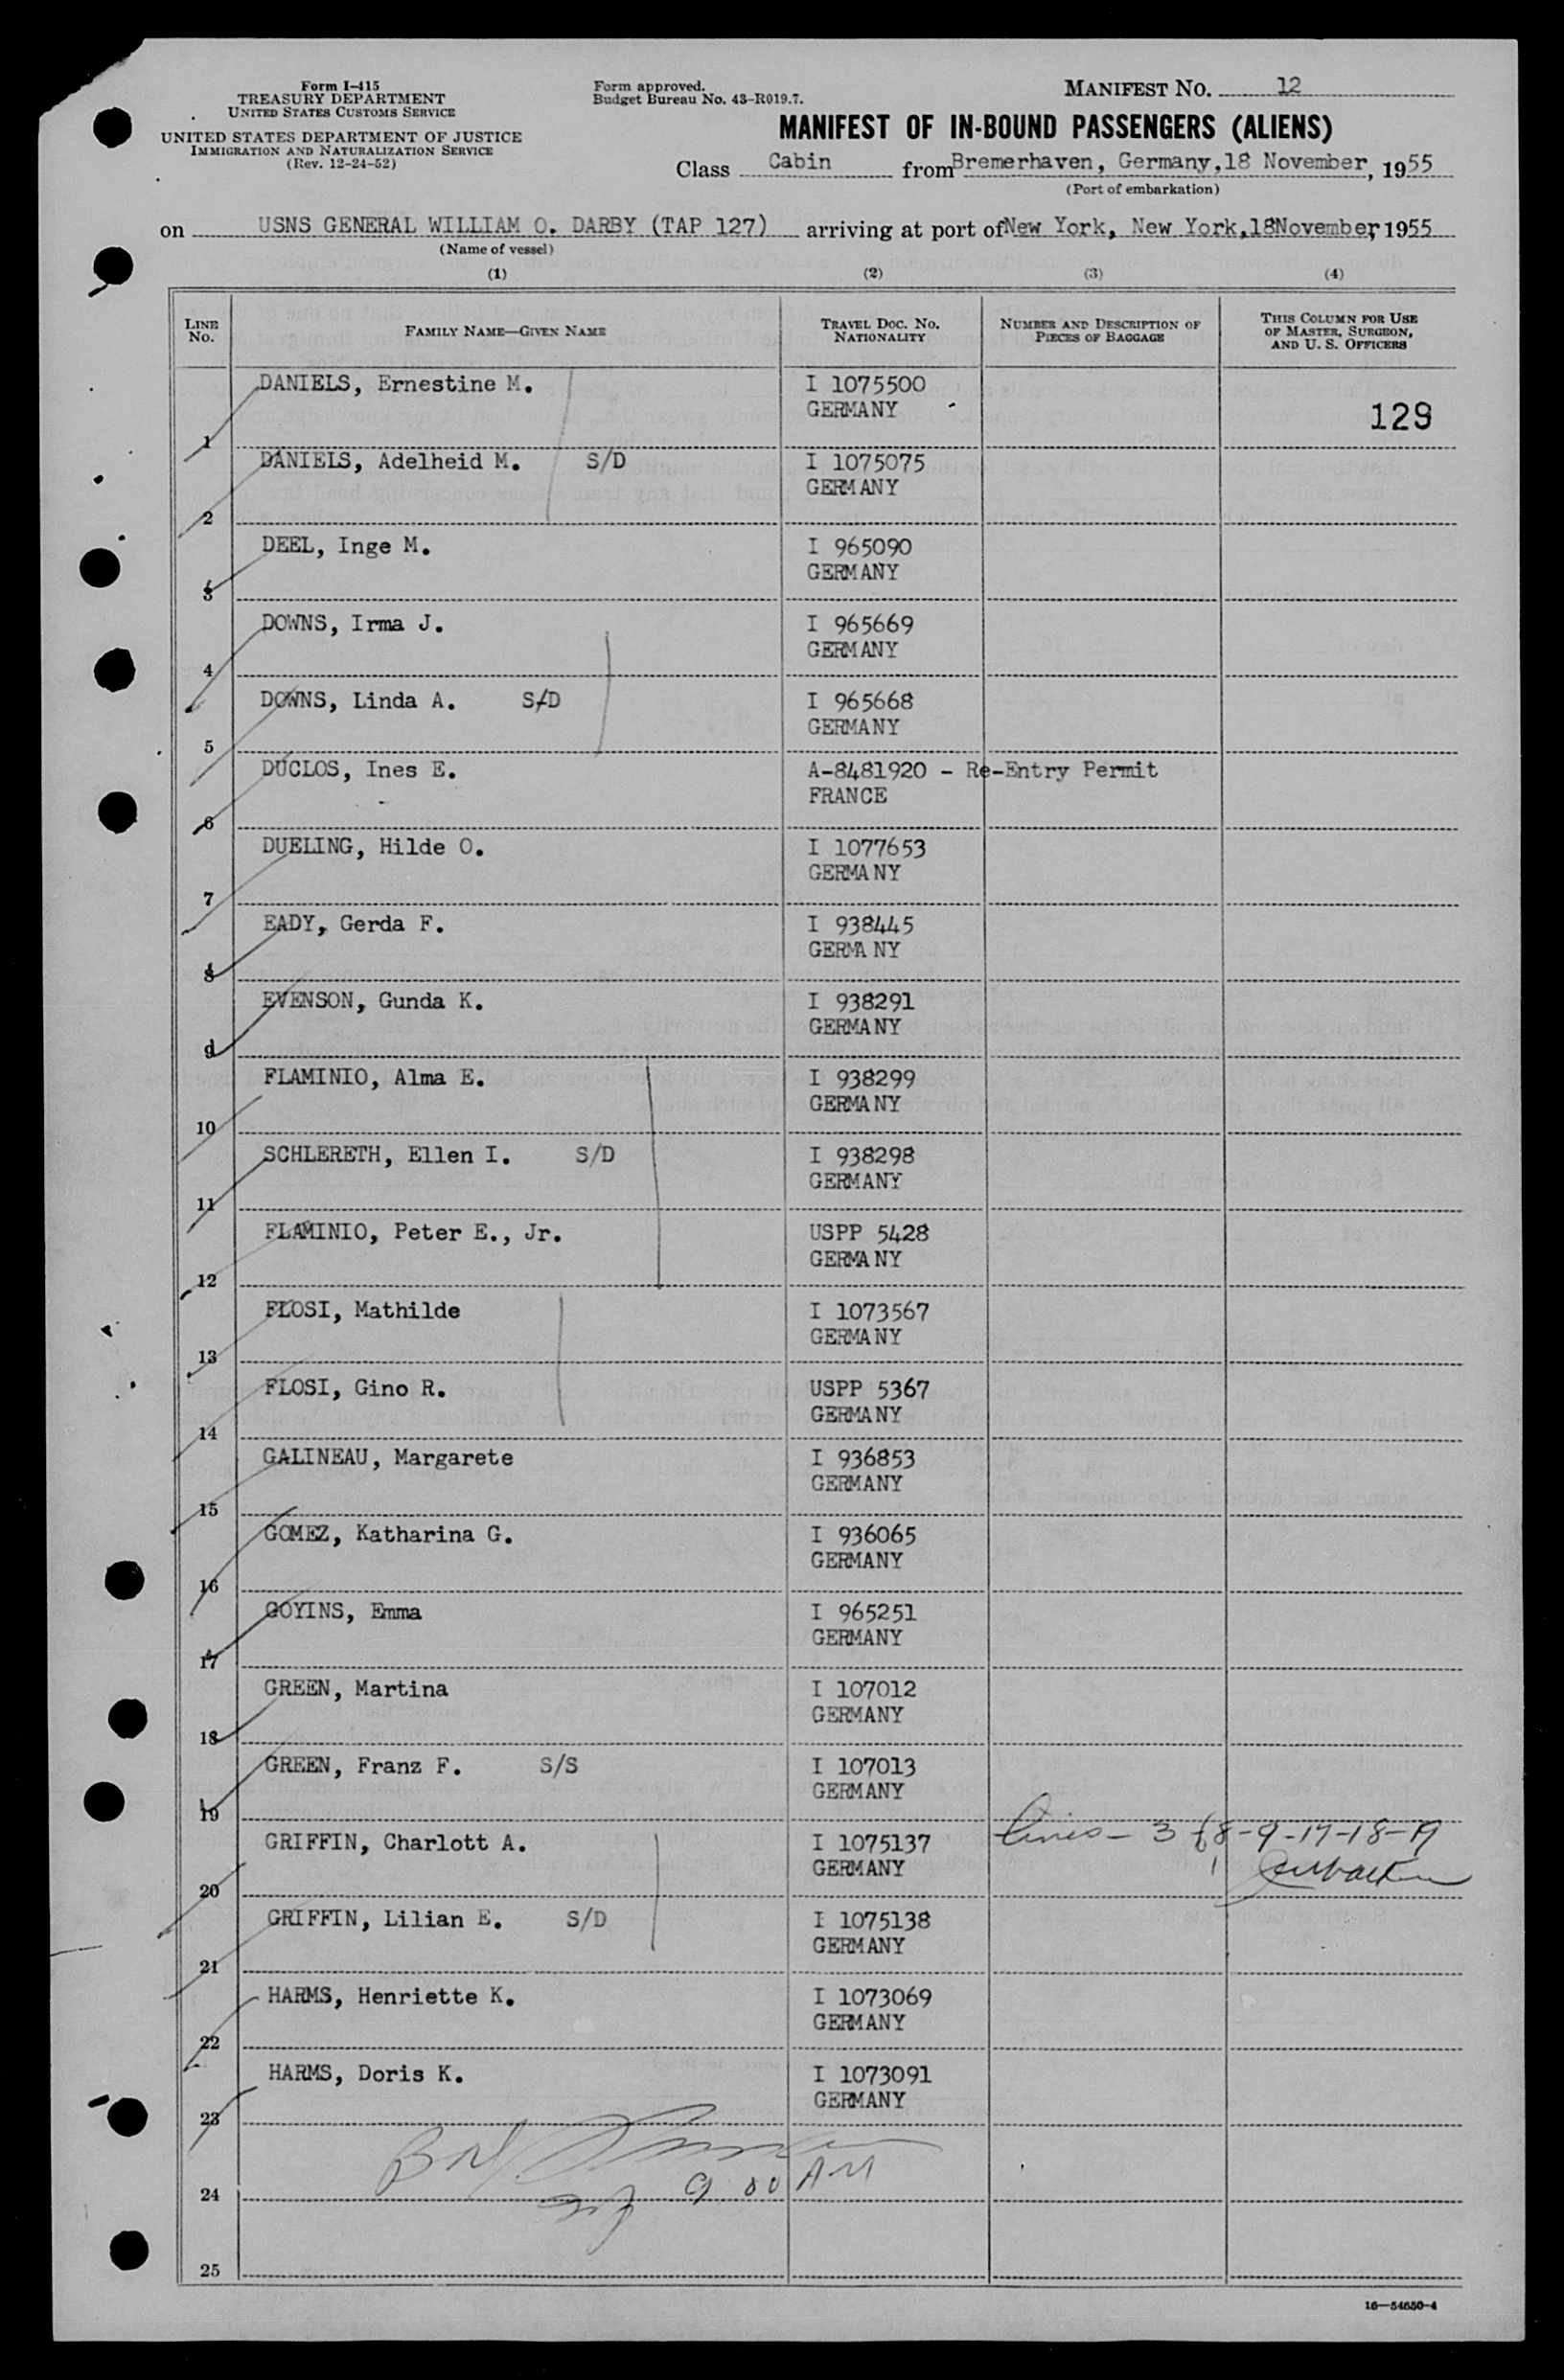 Form I-415
TREASURY DEPARTMENT
UNITED STATES CUSTOMS SERVICE
UNITED STATES DEPARTMENT OF JUSTICE
IMMIGRATION AND NATURALIZATION SERVICE
(Rev. 12-24-52)
Form approved.
Budget Bureau No. 43-R019.7.
MANIFEST NO. 12
MANIFEST OF IN-BOUND PASSENGERS (ALIENS)
Class Cabin from Bremerhaven, Germany, 18 November, 1955
(Port of embarkation)
on USNS GENERAL WILLIAM O. DARBY (TAP 127) arriving at port of New York, New York, 18November, 1955
(Name of vessel)
(1) (2) (3) (4)
LINE NO. FAMILY NAME—GIVEN NAME TRAVEL DOC. NO. NATIONALITY NUMBER AND DESCRIPTION OF PIECES OF BAGGAGE THIS COLUMN FOR USE OF MASTER, SURGEON, AND U. S. OFFICERS
DANIELS, Ernestine M. I 1075500
GERMANY 129
1
DANIELS, Adelheid M. S/D I 1075075
GERMANY
2
DEEL, Inge M. I 965090
GERMANY
3
DOWNS, Irma J. I 965669
GERMANY
4
DOWNS, Linda A. S/D I 965668
GERMANY
5
DUCLOS, Ines E. A-8481920 - Re-Entry Permit
FRANCE
6
DUELING, Hilde O. I 1077653
GERMANY
7
EADY, Gerda F. I 938445
GERMANY
8
EVENSON, Gunda K. I 938291
GERMANY
9
FLAMINIO, Alma E. I 938299
GERMANY
10
SCHLERETH, Ellen I. S/D I 938298
GERMANY
11
FLAMINIO, Peter E., Jr. USPP 5428
GERMANY
12
FLOSI, Mathilde I 1073567
GERMANY
13
FLOSI, Gino R. USPP 5367
GERMANY
14
GALINEAU, Margarete I 936853
GERMANY
15
GOMEZ, Katharina G. I 936065
GERMANY
16
GOYINS, Emma I 965251
GERMANY
17
GREEN, Martina I 107012
GERMANY
18
GREEN, Franz F. S/S I 107013
GERMANY
19
GRIFFIN, Charlott A. I 1075137 lines - 3 - 8 - 9 - 17 - 18 - 19
GERMANY
20
GRIFFIN, Lilian E. S/D I 1075138
GERMANY
21
HARMS, Henriette K. I 1073069
GERMANY
22
HARMS, Doris K. I 1073091
GERMANY
23
9 00 AM
24
25
16—54650-4